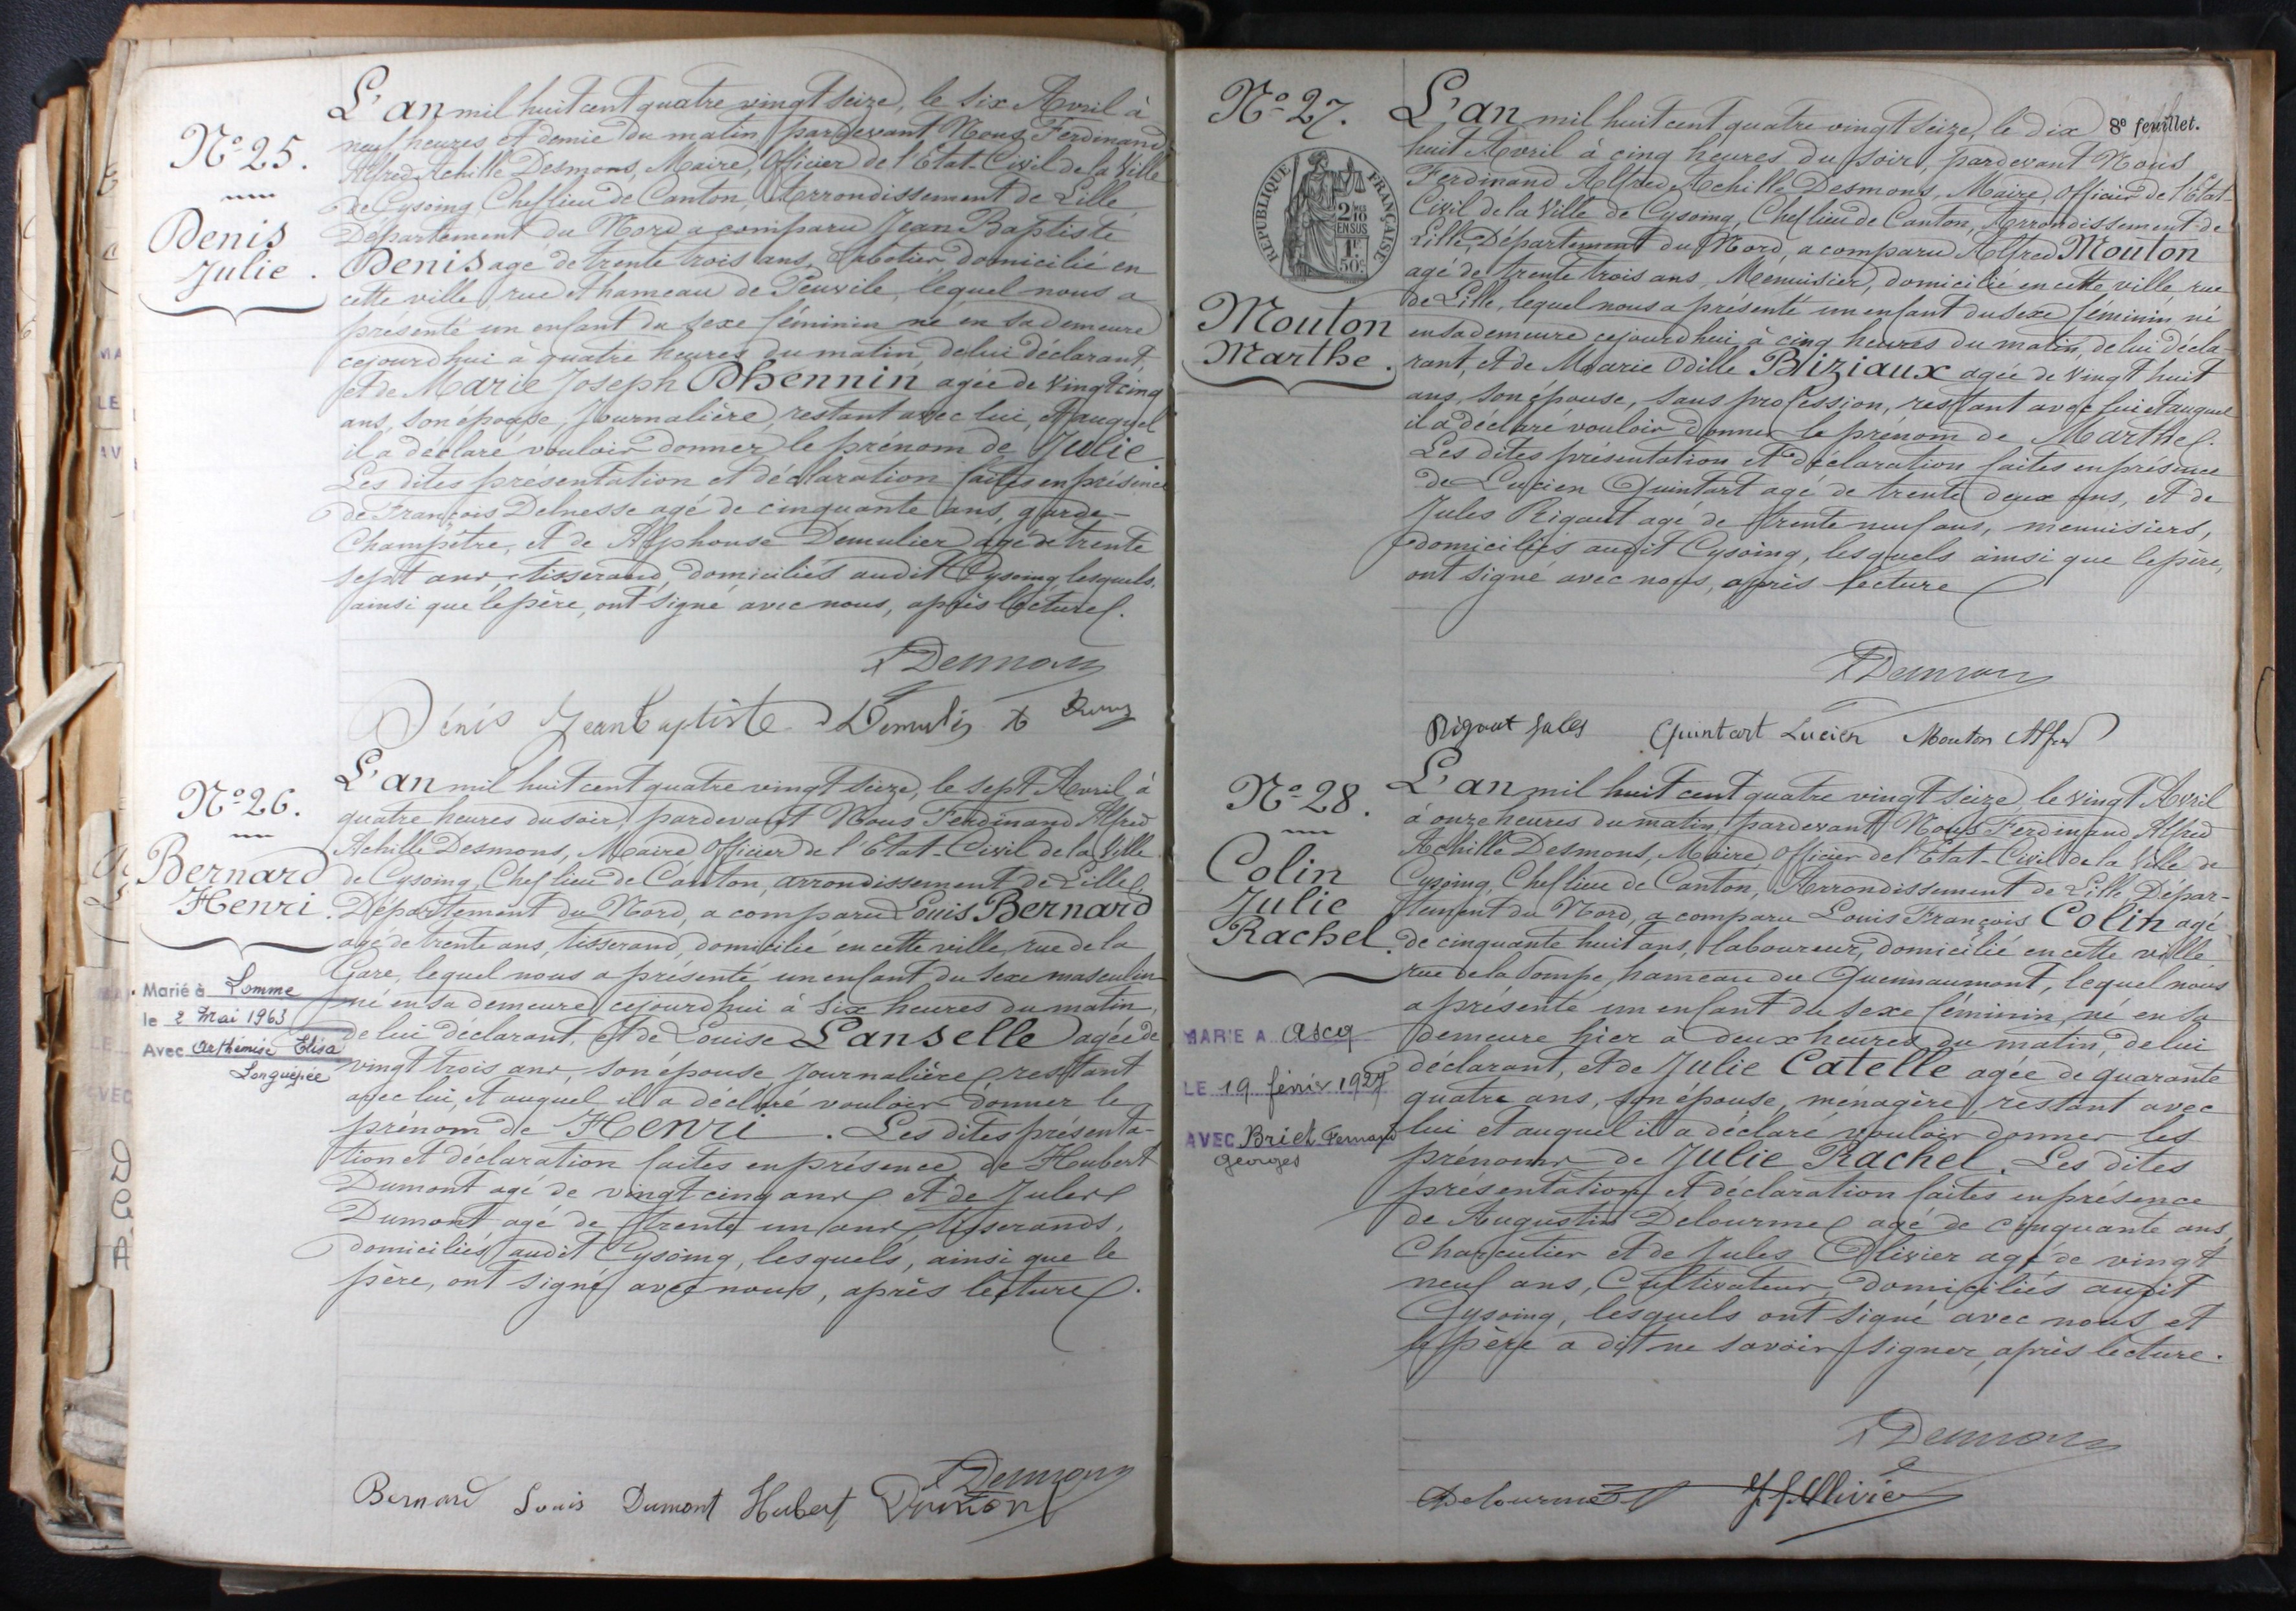 L'an mil huit cent quatre vingt seize, le six Avril à
neuf heures et demie du matin, pardevant Nous Ferdinand
Alfred Achille Desmons, Maire, Officier de l'Etat-Civil de la Ville
de Cysoing, Chef lieu de Canton, Arrondissement de Lille,
Département du Nord a comparu Jean Baptiste
Denis agé de trente trois ans, Sabotier domicilié en
cette ville, rue et hameau de
lequel nous a
présenté un enfant du sexe féminin né en sa demeure
cejourd'hui à quatre heures du matin, de lui déclarant,
et de Marie Joseph Dhennin agée de vingt cinq
ans, son épouse, Journalière, restant avec lui, et auquel
il a déclaré vouloir donner le prénom de Julie
Les dites présentation et déclaration faites en présence
de François Delnesse agé de cinquante ans, garde-
Champêtre, et de Alphonse Demulier agé de trente
sept ans, tisserand, domiciliés audit Cysoing, lesquels,
ainsi que le père, ont signé avec nous, après lecture.
N° 25.
Denis
Julie.
A Desmons
Dénis Jean baptiste Demulier
N° 26.
Bernard
Henri.
Marié à Lomme
le 2 Mai 1963
Avec Arthémise Elisa
Longuépée
L'an mil huit cent quatre vingt seize, le sept Avril, à
quatre heures du soir, pardevant Nous Ferdinand Alfred
Achille Desmons, Maire Officier de l'Etat-Civil de la Ville
de Cysoing, Chef lieu de Canton, arrondissement de Lille,
Département du Nord, a comparu Louis Bernard
agé de trente ans, tisserand, domicilié en cette ville, rue de la
Gare, lequel nous a présenté un enfant du sexe masculin
né en sa demeure cejourd'hui à six heures du matin,
de lui déclarant, et de Louise Lanselle agée de
vingt trois ans, son épouse Journalière, restant
avec lui, et auquel il a déclaré vouloir donner le
prénom de Henri. Les dites présenta-
tion et déclaration faites en présence de Hubert
Dumont agé de vingt cinq ans et de Jules
Dumont agé de trente un ans, tisserands,
domiciliés audit Cysoing, lesquels, ainsi que le
père, ont signé avec nous, après lecture.
A Desmons
Bernard Louis Dumont Hubert Dumont
8e feuillet.
N° 27.
REPUBLIQUE FRANÇAISE
2/10
EN SUS
1F
50c
Mouton
Marthe.
L'an mil huit cent quatre vingt seize, le dix
huit Avril à cinq heures du soir, pardevant Nous
Ferdinand Alfred Achille Desmons, Maire, Officier de l'Etat-
Civil de la Ville de Cysoing, Chef lieu de Canton, Arrondissement de
Lille, Département du Nord, a comparu Alfred Mouton
agé de trente trois ans, Menuisier, domicilié en cette ville, rue
de Lille, lequel nous a présenté un enfant du sexe féminin né
en sa demeure cejourd'hui, à cinq heures du matin, de lui décla-
rant, et de Marie Odille Bliziaux agée de vingt huit
ans, son épouse, sans profession, restant avec lui et auquel
il a déclaré vouloir donner le prénom de Marthe.
Les dites présentation et déclaration faites en présence
de Lucien Quintart agé de trente deux ans, et de
Jules Rigaut agé de trente neuf ans, menuisiers,
domiciliés audit Cysoing, lesquels ainsi que le père,
ont signé avec nous, après lecture
A Desmons
Rigaut Jules Quintart Lucien Mouton Alfred
N° 28.
Colin
Julie
Rachel.
MARIE A Ascq
LE 19 février 1927
AVEC Briet Fernand
Georges
L'an mil huit cent quatre vingt seize, le vingt Avril
à onze heures du matin, pardevant Nous Ferdinand Alfred
Achille Desmons, Maire, Officier de l'Etat-Civil de la Ville de
Cysoing, Chef lieu de Canton, Arrondissement de Lille, Dépar-
tement du Nord, a comparu Louis François Colin agé
de cinquante huit ans, laboureur, domicilié en cette ville
rue de la Pompe, hameau du Quennaumont, lequel nous
a présenté un enfant du sexe féminin, né en sa
demeure hier à deux heures du matin, de lui
déclarant, et de Julie Catelle agée de quarante
quatre ans, son épouse, ménagère, restant avec
lui et auquel il a déclaré vouloir donner les
prénoms de Julie Rachel. Les dites
présentation et déclaration faites en présence
de Augustin Delourme agé de cinquante ans,
Charcutier et de Jules Olivier agé de vingt
neuf ans, Cultivateur, domiciliés audit
Cysoing, lesquels ont signé avec nous et
le père a dit ne savoir signer, après lecture.
A Desmons
Delourme J. Ollivier